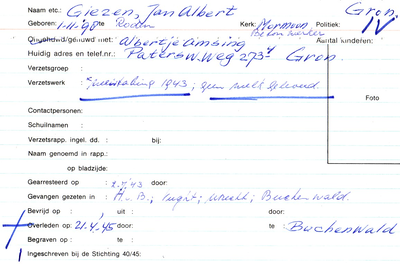 Naam etc.: Giezen, Jan Albert Gron.
Geboren: 1-11-'98 te Roden Kerk: Mormoon Politiek: IV
Betonwerker
Ongehuwd/gehuwd met: Albertje Amsing Aantal kinderen:
Huidig adres en telef.nr.: Patersw.weg 273ª Gron.
Verzetsgroep :
Verzetswerk : 1943; geen
Foto
Contactpersonen:
Schuilnamen :
Verzetsrapp. ingel. dd. : bij:
Naam genoemd in rapp.:
op bladzijde:
Gearresteerd op : 2.5.'43 door:
Gevangen gezeten in : H.v.B.; Vught; Utrecht; Buchenwald.
Bevrijd op : , uit : door:
Overleden op: 21.4.45 door: te : Buchenwald
Begraven op : te :
Ingeschreven bij de Stichting 40/45: